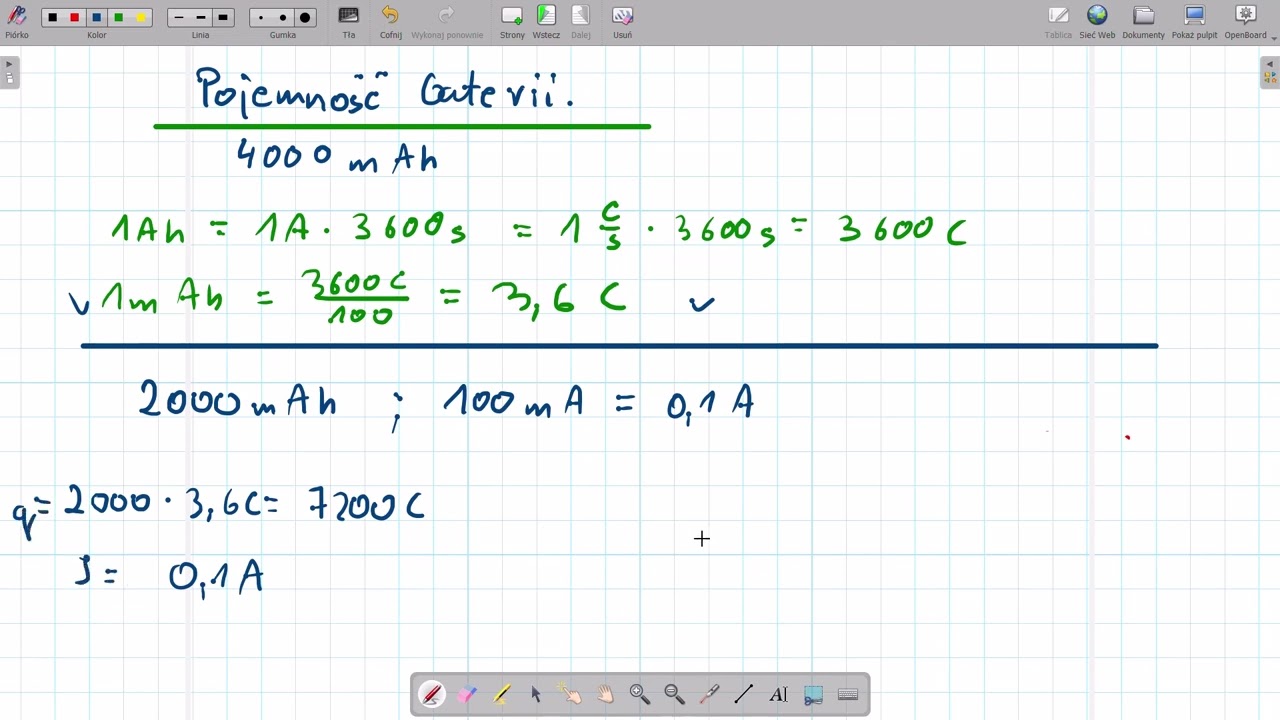 Piórko Kolor Linia Gumka Tła Cofnij Wykonaj ponownie Strony Wstecz Dalej Usuń Tablica Sieć Web Dokumenty Pokaż pulpit OpenBoard
Pojemność baterii.
4000 mAh
1Ah = 1A · 3600s = 1 C/s · 3600s = 3600C
1mAh = 3600C/100 = 3,6 C
2000mAh ; 100mA = 0,1A
q = 2000 · 3,6C = 7200C
J = 0,1A